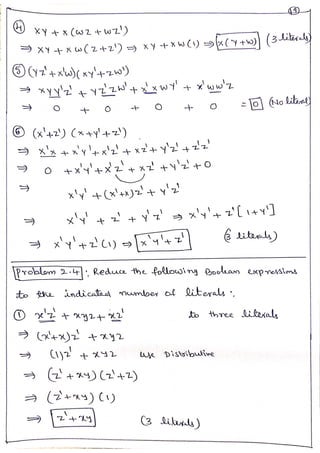 13
④ xy + x(wz + wz')
⇒ xy + xw(z+z') ⇒ xy + xw(1) ⇒ x(y+w) (3 literals)
⑤ (yz' + x'w)(xy' + zw')
⇒ xyy'z' + yz'zw' + x'xwy' + x'ww'z
⇒ 0 + 0 + 0 + 0 = 0 (No literal)
⑥ (x'+z') (x+y'+z')
⇒ x'x + x'y' + x'z' + xz' + y'z' + z'z'
⇒ 0 + x'y' + x'z' + xz' + y'z' + 0
⇒ x'y' + (x'+x)z' + y'z'
⇒ x'y' + z' + y'z' ⇒ x'y' + z'[1+y']
⇒ x'y' + z'(1) ⇒ x'y' + z' (3 literals)
Problem 2.4: Reduce the following Boolean expressions
to the indicated number of literals:
① x'z' + xyz + xz' to three literals
⇒ (x'+x)z' + xyz
⇒ (1)z' + xyz use Distributive
⇒ (z'+xy)(z'+z)
⇒ (z'+xy)(1)
⇒ z'+xy (3 literals)